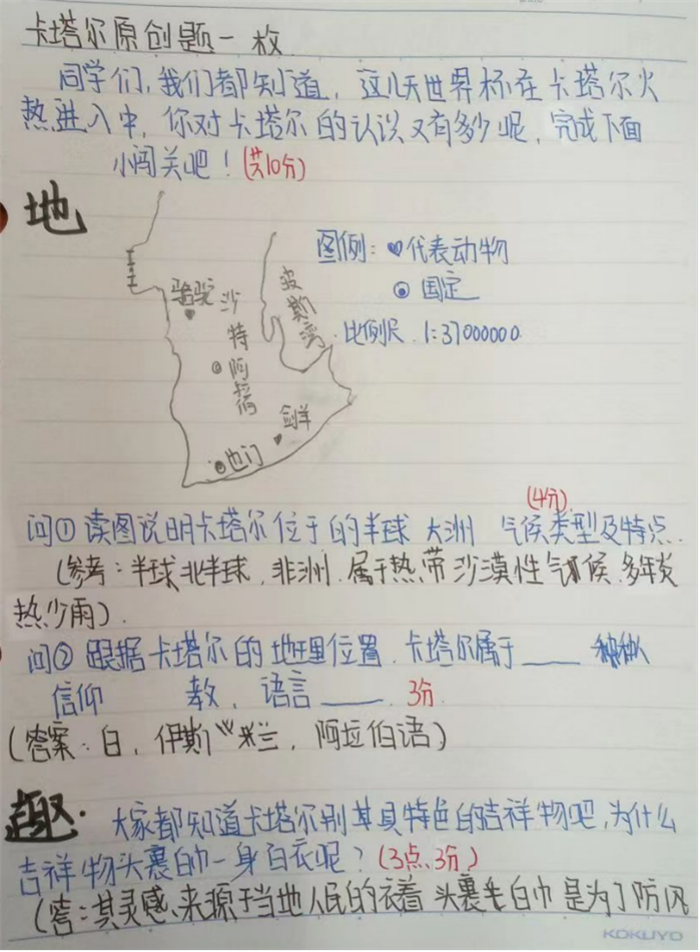 卡塔尔原创题一枚
同学们,我们都知道,这几天世界杯在卡塔尔火
热进入中,你对卡塔尔的认识又有多少呢,完成下面
小闯关吧!(共10分)
地
图例:♥代表动物
⊙国定
比例尺.1:37000000.
骆驼
沙特阿拉伯
波斯湾
剑羊
也门
(4分)
问①读图说明卡塔尔位于的半球 大洲 气候类型及特点.
(参考:半球:北半球,非洲.属于热带沙漠性气候.多年炎
热少雨).
问②跟据卡塔尔的地理位置.卡塔尔属于____ 种
信仰 教,语言____.3分.
(答案:白,伊斯兰,阿拉伯语)
趣.大家都知道卡塔尔别具特色的吉祥物吧,为什么
吉祥物头裹白巾一身白衣呢?(3点、3分)
(答:其灵感、来源于当地人民的衣着 头裹毛白巾是为了防风
KOKUYO